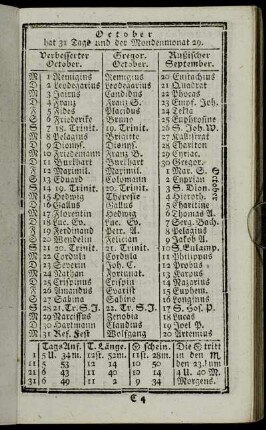 October
hat 31 Tage und der Mondenmonat 29.
Verbesserter Gregor. Rußischer
October. October. September.
M 1 Remigius Remigius 20 Eustachius
D 2 Leodegarius Leodegarius 21 Quadrat
M 3 Jairus Candidus 22 Phocas
D 4 Franz Franz S. 23 Empf. Joh.
F 5 Fides Placidus 24 Tekla
S 6 Friederike Bruno 25 Euphrosine
S 7 18. Trinit. 19. Trinit. 26 S. Joh. W.
M 8 Pelagius Brigitte 27 Kallistrat
D 9 Dionys. Dionys. 28 Chariton
M 10 Friedemann Franz B. 29 Cyriac.
D 11 Burkhard Burkhart 30 Gregor.
F 12 Maximil. Maximil. 1 Mar. S.
S 13 Eduard Colomann 2 Cyprian
S 14 19. Trinit. 20. Trinit. 3 S. Dion.
M 15 Hedwig Theresie 4 Hieroth.
D 16 Gallus Gallus 5 Charitine
M 17 Florentin Hedwig 6 Thomas A.
D 18 Luc. Ev. Luc. Ev. 7 Serg. Bach.
F 19 Ferdinand Petr. A. 8 Pelagius
S 20 Wendelin Felician 9 Jakob A.
S 21 20. Trinit. 21. Trinit. 10 S. Eulamp.
M 22 Cordula Cordula 11 Philippus
D 23 Severin Joh. C. 12 Probus
M 24 Nathan Fortunat. 13 Karpus
D 25 Crispinus Crispin 14 Nazarius
F 26 Amandus Evarist 15 Euphem.
S 27 Sabina Sabine 16 Longinus
S 28 21. Tr. S. J. 22. Tr. S. J. 17 S. Hos. P.
M 29 Narcissus Zenobia 18 Lucas
D 30 Hartmann Claudus 19 Joel P.
M 31 Ref. Fest Wolfgang 20 Artemius
Tags Anf. T. Länge. schein. Die tritt
1 5 U. 34 m. 12st. 52m. 11st. 28m. in den
11 5 53 12 14 10 den 23. um
21 6 13 11 40 10 14 4 U. 40 M.
31 6 49 11 2 9 34 Morgens.
C 4